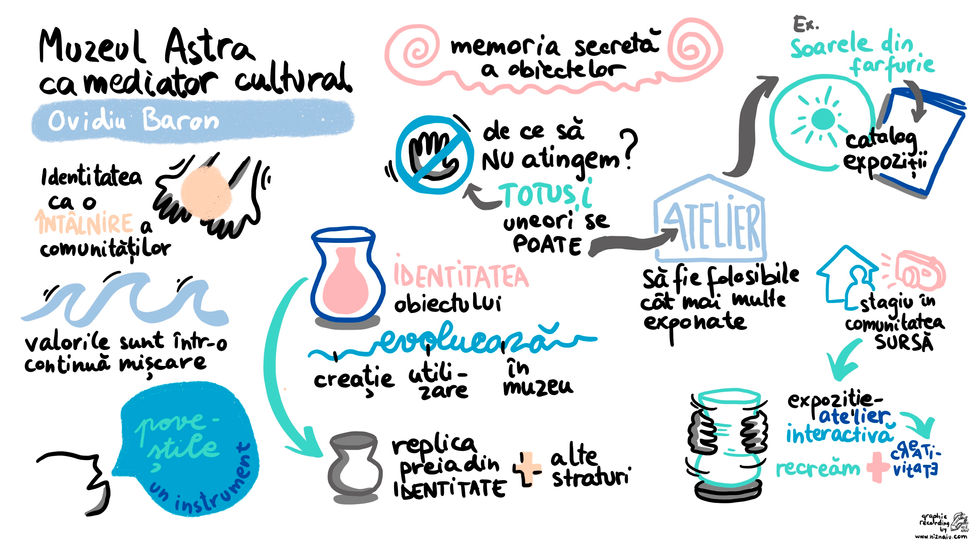 Muzeul Astra
ca mediator cultural
Ovidiu Baron
Identitatea
ca o
ÎNTÂLNIRE a
comunităților
valorile sunt într-o
continuă mișcare
pove-
știle
un instrument
memoria secretă
a obiectelor
de ce să
NU atingem?
TOTUȘI
uneori se
POATE
IDENTITATEA
obiectului
evoluează
creație
utili-
zare
în
muzeu
replica
preia din
IDENTITATE
+
alte
straturi
Ex.
Soarele din
farfurie
catalog
expoziții
ATELIER
Să fie folosibile
cât mai multe
exponate
stagiu în
comunitatea
SURSĂ
expozitie-
atelier
interactivă
recreăm +
CREATI-
VITATE
graphic
recording
by
www.niznaiu.com